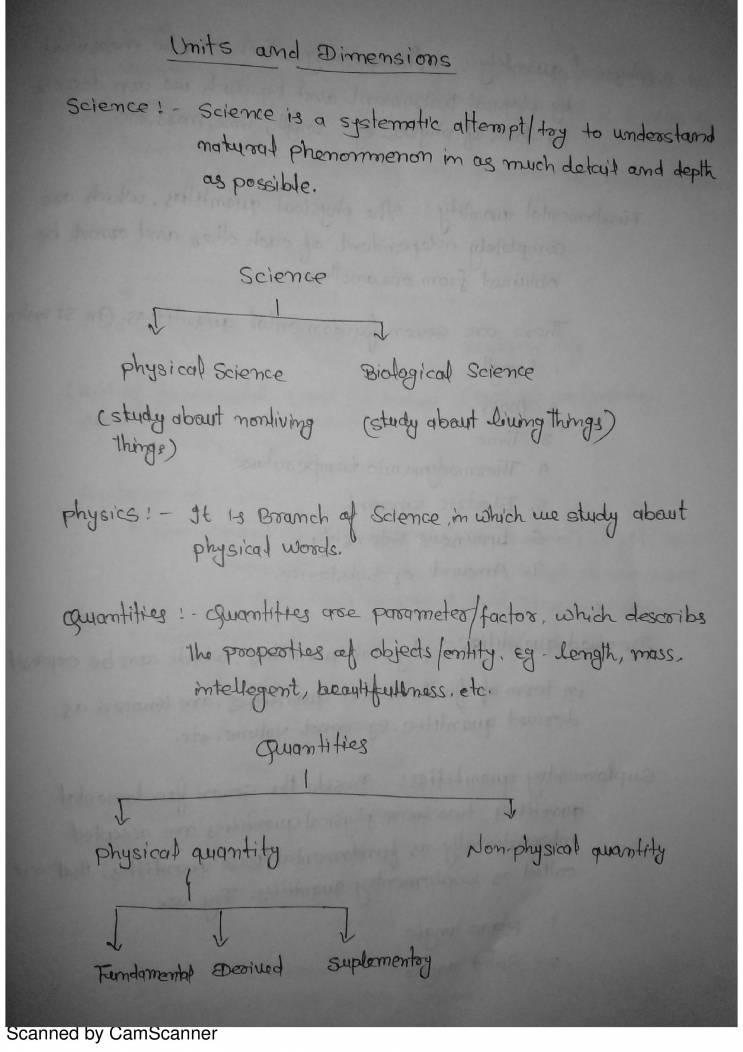 Units and Dimensions
Science :- Science is a systematic attempt/try to understand
natural phenonmenon in as much detail and depth
as possible.
Science
physical Science Biological Science
(study about nonliving (study about living things)
things)
physics :- It is Branch of Science, in which we study about
physical words.
Quantities :- Quantities are parameter/factor, which describs
the properties of objects/entity. eg - length, mass,
intellegent, beautifullness. etc.
Quantities
physical quantity Non-physical quantity
Fundamental Derived Suplementry
Scanned by CamScanner